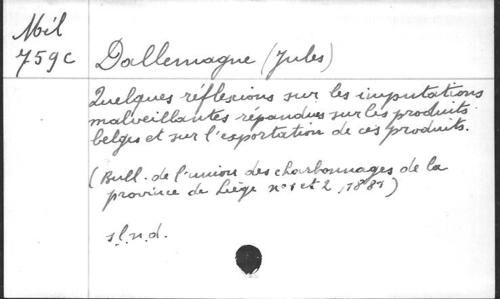 Mél
759c
Dallemagne (Jules)
Quelques réflexions sur les imputations
malveillantes répandues sur les produits
belges et sur l'exportation de ces produits.
(Bull. de l'union des charbonnages de la
province de Liège n° 1 et 2, 1881)
s.l.n.d.